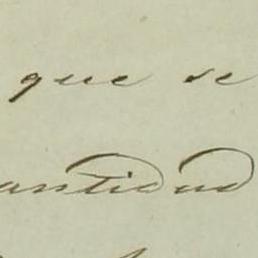 que se
antidad